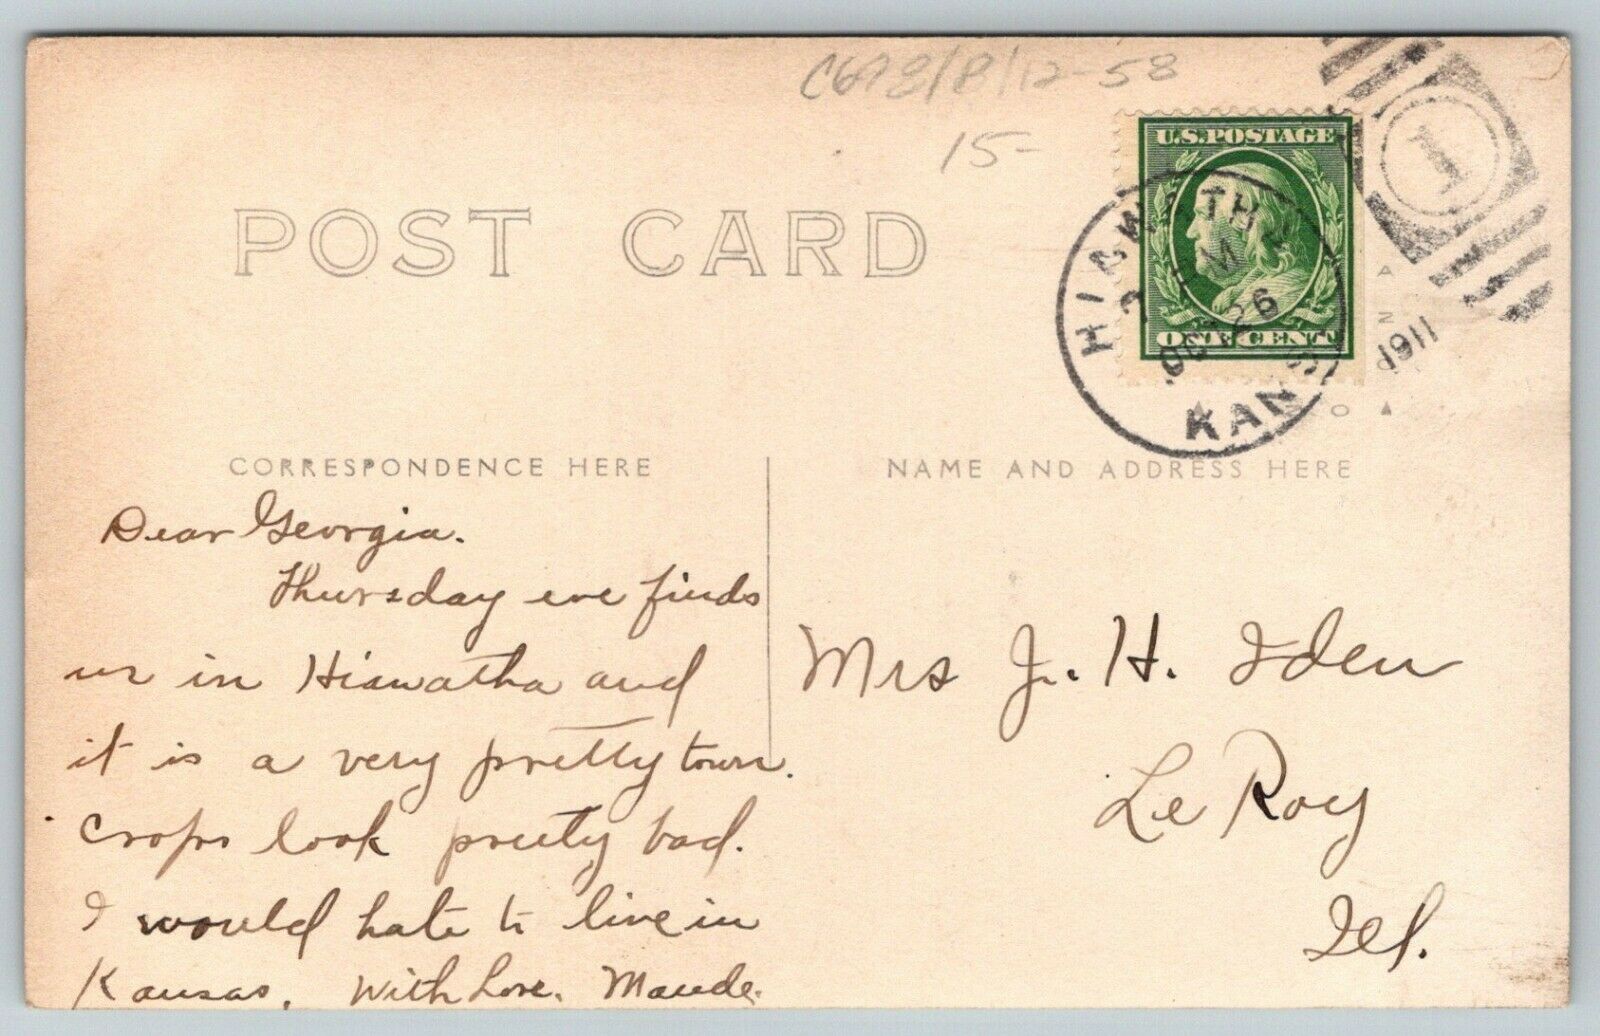 C678/8/12-58
15-
U.S. POSTAGE
ONE CENT
HIAWATHA
M
OCT 26
1911
KANS
1
POST CARD
CORRESPONDENCE HERE
NAME AND ADDRESS HERE
Dear Georgia.
Thursday eve finds
us in Hiawatha and
it is a very pretty town.
Crops look pretty bad.
I would hate to live in
Kansas. With Love. Maude.
Mrs J. H. Iden
Le Roy
Ill.